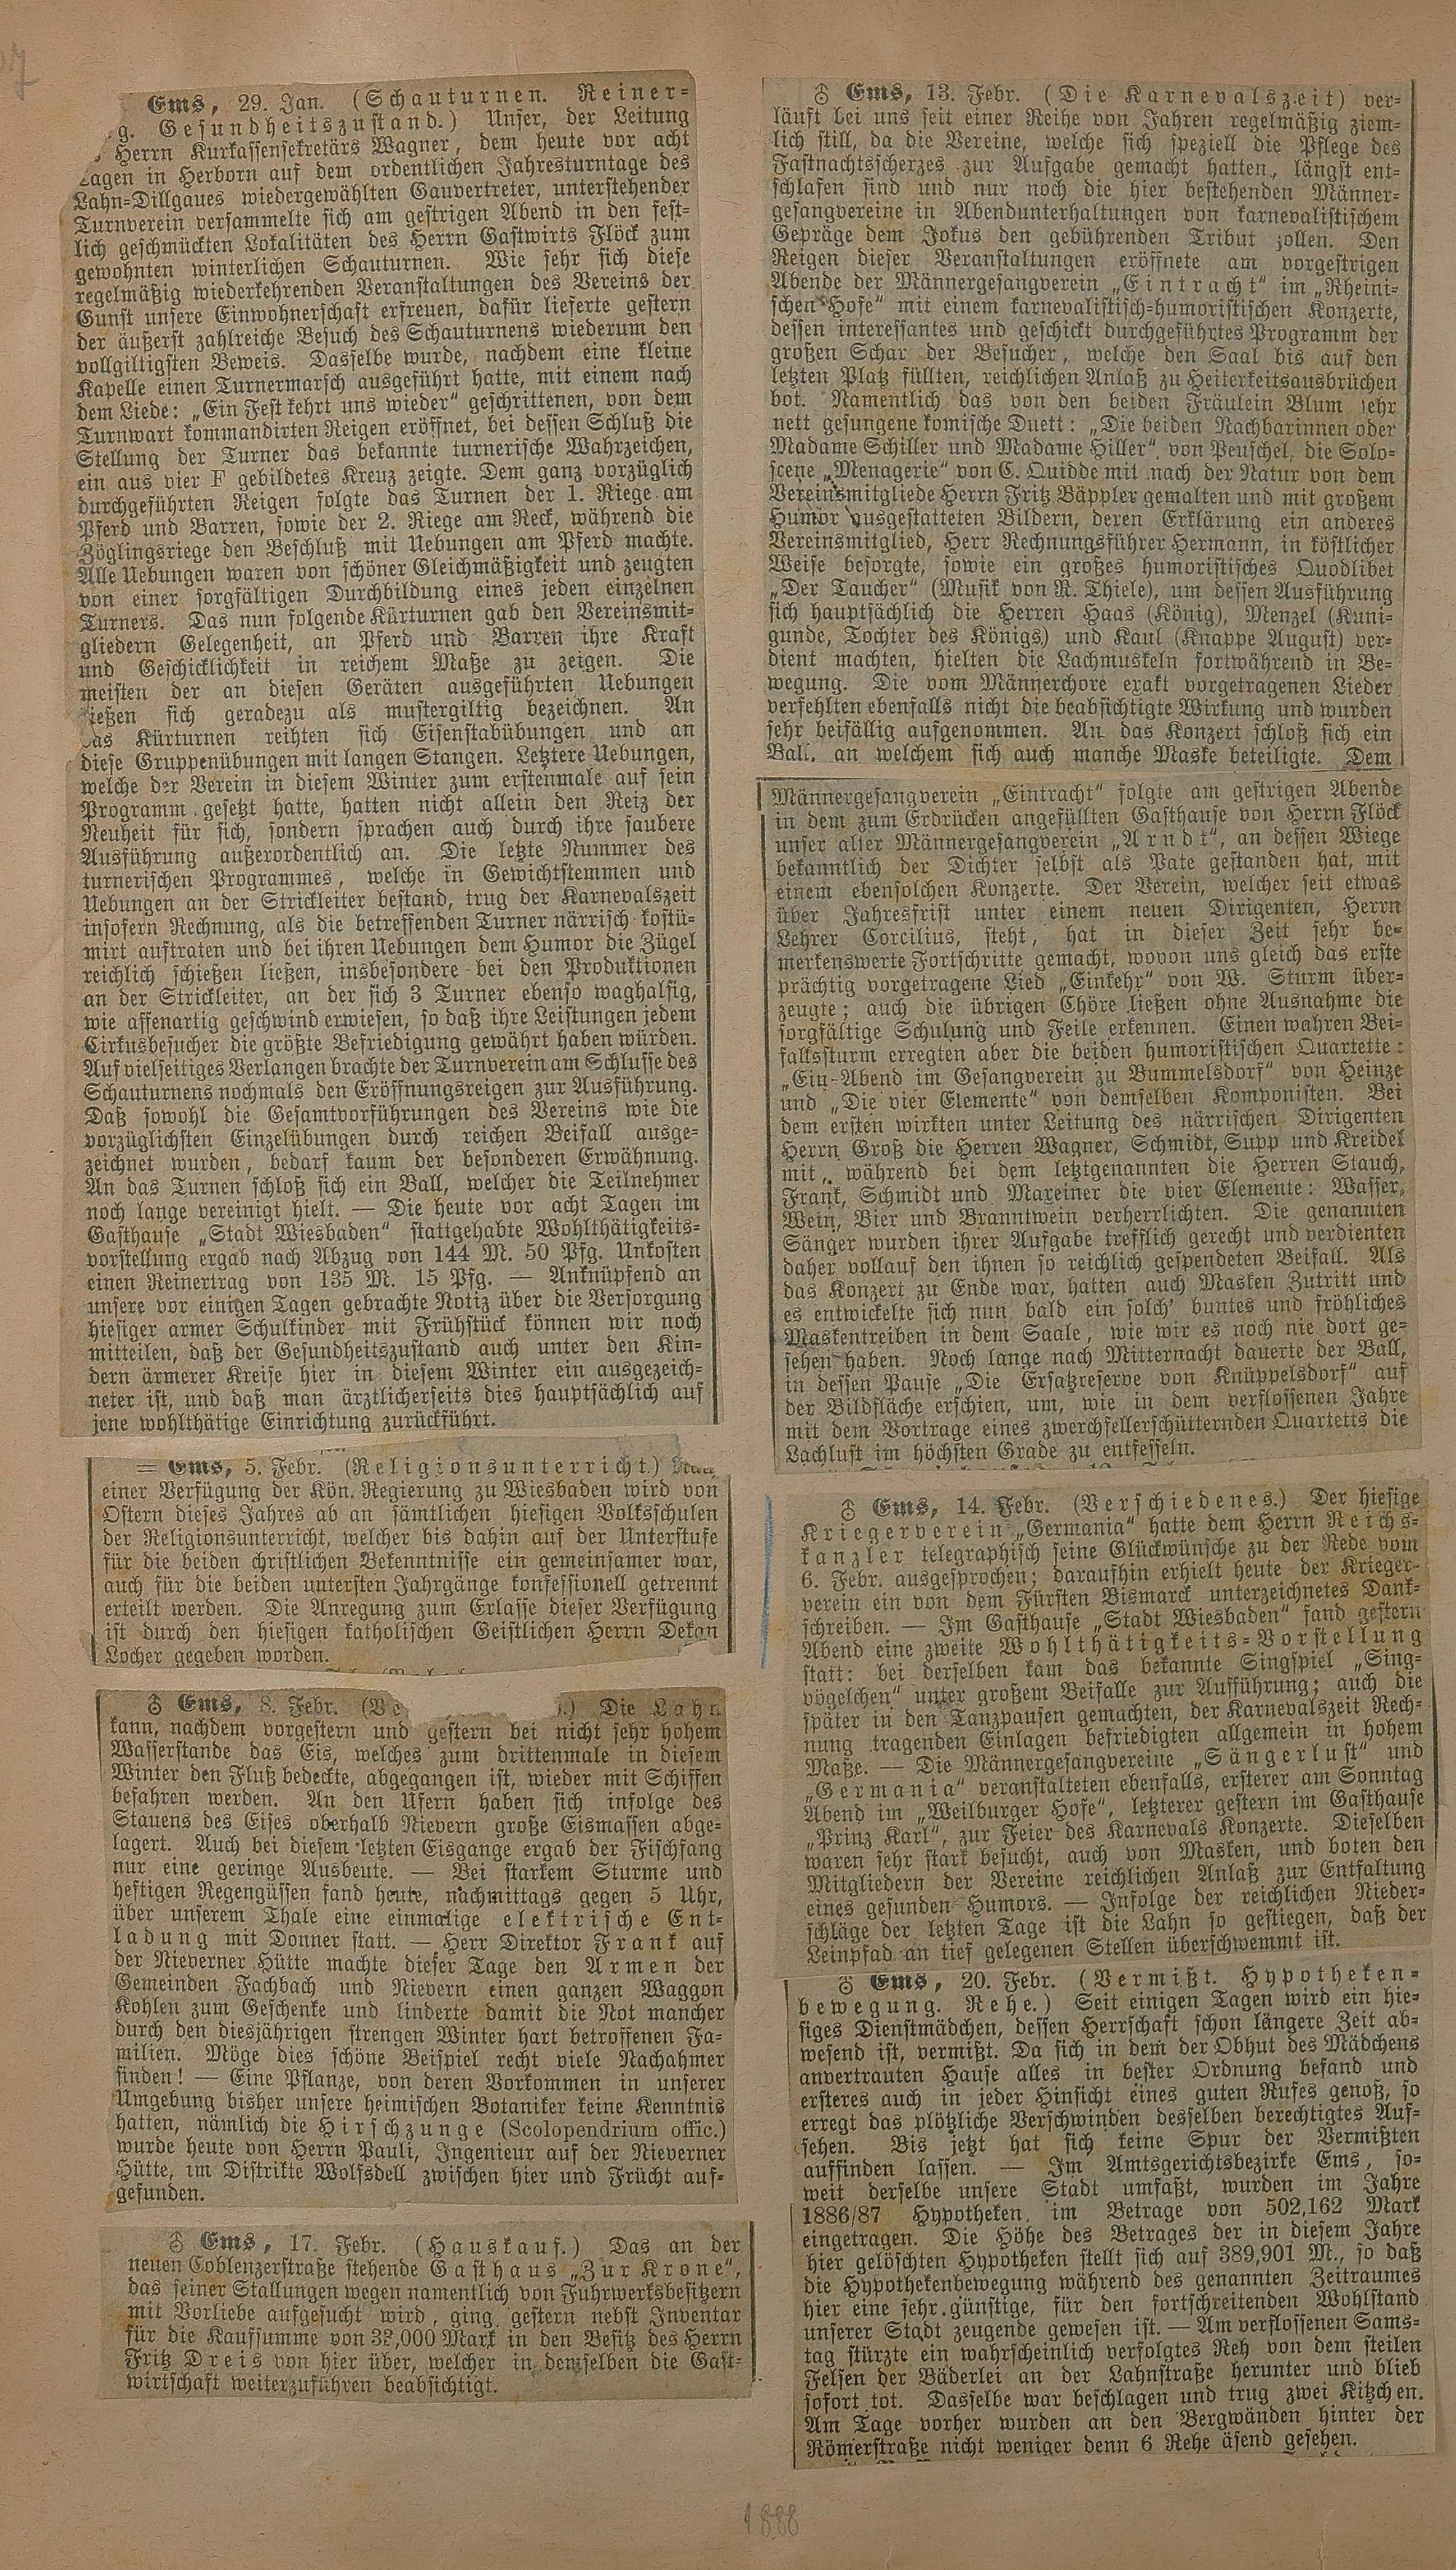 Ems, 29. Jan. (Schauturnen. Reiner-
g. Gesundheitszustand.) Unser, der Leitung
Herrn Kurkassensekretärs Wagner, dem heute vor acht
Tagen in Herborn auf dem ordentlichen Jahresturntage des
Lahn-Dillgaues wiedergewählten Gauvertreter, unterstehender
Turnverein versammelte sich am gestrigen Abend in den fest-
lich geschmückten Lokalitäten des Herrn Gastwirts Flöck zum
gewohnten winterlichen Schauturnen. Wie sehr sich diese
regelmäßig wiederkehrenden Veranstaltungen des Vereins der
Gunst unsere Einwohnerschaft erfreuen, dafür lieferte gestern
der äußerst zahlreiche Besuch des Schauturnens wiederum den
vollgiltigsten Beweis. Dasselbe wurde, nachdem eine kleine
Kapelle einen Turnermarsch ausgeführt hatte, mit einem nach
dem Liede: „Ein Fest kehrt uns wieder“ geschrittenen, von dem
Turnwart kommandirten Reigen eröffnet, bei dessen Schluß die
Stellung der Turner das bekannte turnerische Wahrzeichen,
ein aus vier F gebildetes Kreuz zeigte. Dem ganz vorzüglich
durchgeführten Reigen folgte das Turnen der 1. Riege am
Pferd und Barren, sowie der 2. Riege am Reck, während die
Zöglingsriege den Beschluß mit Uebungen am Pferd machte.
Alle Uebungen waren von schöner Gleichmäßigkeit und zeugten
von einer sorgfältigen Durchbildung eines jeden einzelnen
Turners. Das nun folgende Kürturnen gab den Vereinsmit-
gliedern Gelegenheit, an Pferd und Barren ihre Kraft
und Geschicklichkeit in reichem Maße zu zeigen. Die
meisten der an diesen Geräten ausgeführten Uebungen
ließen sich geradezu als mustergiltig bezeichnen. An
das Kürturnen reihten sich Eisenstabübungen und an
diese Gruppenübungen mit langen Stangen. Letztere Uebungen,
welche der Verein in diesem Winter zum erstenmale auf sein
Programm gesetzt hatte, hatten nicht allein den Reiz der
Neuheit für sich, sondern sprachen auch durch ihre saubere
Ausführung außerordentlich an. Die letzte Nummer des
turnerischen Programmes, welche in Gewichtstemmen und
Uebungen an der Strickleiter bestand, trug der Karnevalszeit
insofern Rechnung, als die betreffenden Turner närrisch kostü-
mirt auftraten und bei ihren Uebungen dem Humor die Zügel
reichlich schießen ließen, insbesondere bei den Produktionen
an der Strickleiter, an der sich 3 Turner ebenso waghalsig,
wie affenartig geschwind erwiesen, so daß ihre Leistungen jedem
Cirkusbesucher die größte Befriedigung gewährt haben würden.
Auf vielseitiges Verlangen brachte der Turnverein am Schlusse des
Schauturnens nochmals den Eröffnungsreigen zur Ausführung.
Daß sowohl die Gesamtvorführungen des Vereins wie die
vorzüglichsten Einzelübungen durch reichen Beifall ausge-
zeichnet wurden, bedarf kaum der besonderen Erwähnung.
An das Turnen schloß sich ein Ball, welcher die Teilnehmer
noch lange vereinigt hielt. — Die heute vor acht Tagen im
Gasthause „Stadt Wiesbaden“ stattgehabte Wohlthätigkeits-
vorstellung ergab nach Abzug von 144 M. 50 Pfg. Unkosten
einen Reinertrag von 135 M. 15 Pfg. — Anknüpfend an
unsere vor einigen Tagen gebrachte Notiz über die Versorgung
hiesiger armer Schulkinder mit Frühstück können wir noch
mitteilen, daß der Gesundheitszustand auch unter den Kin-
dern ärmerer Kreise hier in diesem Winter ein ausgezeich-
neter ist, und daß man ärztlicherseits dies hauptsächlich auf
jene wohlthätige Einrichtung zurückführt.
= Ems, 5. Febr. (Religionsunterricht.)
einer Verfügung der Kön. Regierung zu Wiesbaden wird von
Ostern dieses Jahres ab an sämtlichen hiesigen Volksschulen
der Religionsunterricht, welcher bis dahin auf der Unterstufe
für die beiden christlichen Bekenntnisse ein gemeinsamer war,
auch für die beiden untersten Jahrgänge konfessionell getrennt
erteilt werden. Die Anregung zum Erlasse dieser Verfügung
ist durch den hiesigen katholischen Geistlichen Herrn Dekan
Locher gegeben worden.
♁ Ems, 8. Febr. (Ve .) Die Lahn
kann, nachdem vorgestern und gestern bei nicht sehr hohem
Wasserstande das Eis, welches zum drittenmale in diesem
Winter den Fluß bedeckte, abgegangen ist, wieder mit Schiffen
befahren werden. An den Ufern haben sich infolge des
Stauens des Eises oberhalb Nievern große Eismassen abge-
lagert. Auch bei diesem letzten Eisgange ergab der Fischfang
nur eine geringe Ausbeute. — Bei starkem Sturme und
heftigen Regengüssen fand heute, nachmittags gegen 5 Uhr,
über unserem Thale eine einmalige elektrische Ent-
ladung mit Donner statt. — Herr Direktor Frank auf
der Nieverner Hütte machte dieser Tage den Armen der
Gemeinden Fachbach und Nievern einen ganzen Waggon
Kohlen zum Geschenke und linderte damit die Not mancher
durch den diesjährigen strengen Winter hart betroffenen Fa-
milien. Möge dies schöne Beispiel recht viele Nachahmer
finden! — Eine Pflanze, von deren Vorkommen in unserer
Umgebung bisher unsere heimischen Botaniker keine Kenntnis
hatten, nämlich die Hirschzunge (Scolopendrium offic.)
wurde heute von Herrn Pauli, Ingenieur auf der Nieverner
Hütte, im Distrikte Wolfsdell zwischen hier und Frücht auf-
gefunden.
♁ Ems, 17. Febr. (Hauskauf.) Das an der
neuen Coblenzerstraße stehende Gasthaus „Zur Krone“,
das seiner Stallungen wegen namentlich von Fuhrwerksbesitzern
mit Vorliebe aufgesucht wird, ging gestern nebst Inventar
für die Kaufsumme von Mark in den Besitz des Herrn
Fritz Dreis von hier über, welcher in demselben die Gast-
wirtschaft weiterzuführen beabsichtigt.
♁ Ems, 13. Febr. (Die Karnevalszeit) ver-
läuft bei uns seit einer Reihe von Jahren regelmäßig ziem-
lich still, da die Vereine, welche sich speziell die Pflege des
Fastnachtsscherzes zur Aufgabe gemacht hatten, längst ent-
schlafen sind und nur noch die hier bestehenden Männer-
gesangvereine in Abendunterhaltungen von karnevalistischem
Gepräge dem Jokus den gebührenden Tribut zollen. Den
Reigen dieser Veranstaltungen eröffnete am vorgestrigen
Abende der Männergesangverein „Eintracht“ im „Rheini-
schen Hofe“ mit einem karnevalistisch-humoristischen Konzerte,
dessen interessantes und geschickt durchgeführtes Programm der
großen Schar der Besucher, welche den Saal bis auf den
letzten Platz füllten, reichlichen Anlaß zu Heiterkeitsausbrüchen
bot. Namentlich das von den beiden Fräulein Blum sehr
nett gesungene komische Duett: „Die beiden Nachbarinnen oder
Madame Schiller und Madame Hiller“ von Peuschel, die Solo-
scene „Menagerie“ von C. Quidde mit nach der Natur von dem
Vereinsmitgliede Herrn Fritz Bäppler gemalten und mit großem
Humor ausgestatteten Bildern, deren Erklärung ein anderes
Vereinsmitglied, Herr Rechnungsführer Hermann, in köstlicher
Weise besorgte, sowie ein großes humoristisches Quodlibet
„Der Taucher“ (Musik von R. Thiele), um dessen Ausführung
sich hauptsächlich die Herren Haas (König), Menzel (Kuni-
gunde, Tochter des Königs) und Kaul (Knappe August) ver-
dient machten, hielten die Lachmuskeln fortwährend in Be-
wegung. Die vom Männerchore exakt vorgetragenen Lieder
verfehlten ebenfalls nicht die beabsichtigte Wirkung und wurden
sehr beifällig aufgenommen. An das Konzert schloß sich ein
Ball, an welchem sich auch manche Maske beteiligte. Dem
Männergesangverein „Eintracht“ folgte am gestrigen Abende
in dem zum Erdrücken angefüllten Gasthause von Herrn Flöck
unser alter Männergesangverein „Arndt“, an dessen Wiege
bekanntlich der Dichter selbst als Pate gestanden hat, mit
einem ebensolchen Konzerte. Der Verein, welcher seit etwas
über Jahresfrist unter einem neuen Dirigenten, Herrn
Lehrer Corcilius, steht, hat in dieser Zeit sehr be-
merkenswerte Fortschritte gemacht, wovon uns gleich das erste
prächtig vorgetragene Lied „Einkehr“ von W. Sturm über-
zeugte; auch die übrigen Chöre ließen ohne Ausnahme die
sorgfältige Schulung und Feile erkennen. Einen wahren Bei-
fallssturm erregten aber die beiden humoristischen Quartette:
„Ein Abend im Gesangverein zu Bummelsdorf“ von Heinze
und „Die vier Elemente“ von demselben Komponisten. Bei
dem ersten wirkten unter Leitung des närrischen Dirigenten
Herrn Groß die Herren Wagner, Schmidt, Supp und Kreidel
mit, während bei dem letztgenannten die Herren Stauch,
Frank, Schmidt und Maxeiner die vier Elemente: Wasser,
Wein, Bier und Branntwein verherrlichten. Die genannten
Sänger wurden ihrer Aufgabe trefflich gerecht und verdienten
daher vollauf den ihnen so reichlich gespendeten Beifall. Als
das Konzert zu Ende war, hatten auch Masken Zutritt und
es entwickelte sich nun bald ein solch' buntes und fröhliches
Maskentreiben in dem Saale, wie wir es noch nie dort ge-
sehen haben. Noch lange nach Mitternacht dauerte der Ball,
in dessen Pause „Die Ersatzreserve von Knüppelsdorf“ auf
der Bildfläche erschien, um, wie in dem verflossenen Jahre
mit dem Vortrage eines zwerchfellerschütternden Quartetts die
Lachlust im höchsten Grade zu entfesseln.
♁ Ems, 14. Febr. (Verschiedenes.) Der hiesige
Kriegerverein „Germania“ hatte dem Herrn Reichs-
kanzler telegraphisch seine Glückwünsche zu der Rede vom
6. Febr. ausgesprochen; daraufhin erhielt heute der Krieger-
verein ein von dem Fürsten Bismarck unterzeichnetes Dank-
schreiben. — Im Gasthause „Stadt Wiesbaden“ fand gestern
Abend eine zweite Wohlthätigkeits-Vorstellung
statt: bei derselben kam das bekannte Singspiel „Sing-
vögelchen“ unter großem Beifalle zur Aufführung; auch die
später in den Tanzpausen gemachten, der Karnevalszeit Rech-
nung tragenden Einlagen befriedigten allgemein in hohem
Maße. — Die Männergesangvereine „Sängerlust“ und
„Germania“ veranstalteten ebenfalls, ersterer am Sonntag
Abend im „Weilburger Hofe“, letzterer gestern im Gasthause
„Prinz Karl“, zur Feier des Karnevals Konzerte. Dieselben
waren sehr stark besucht, auch von Masken, und boten den
Mitgliedern der Vereine reichlichen Anlaß zur Entfaltung
eines gesunden Humors. — Infolge der reichlichen Nieder-
schläge der letzten Tage ist die Lahn so gestiegen, daß der
Leinpfad an tief gelegenen Stellen überschwemmt ist.
♁ Ems, 20. Febr. (Vermißt. Hypotheken-
bewegung. Rehe.) Seit einigen Tagen wird ein hie-
siges Dienstmädchen, dessen Herrschaft schon längere Zeit ab-
wesend ist, vermißt. Da sich in dem der Obhut des Mädchens
anvertrauten Hause alles in bester Ordnung befand und
ersteres auch in jeder Hinsicht eines guten Rufes genoß, so
erregt das plötzliche Verschwinden desselben berechtigtes Auf-
sehen. Bis jetzt hat sich keine Spur der Vermißten
auffinden lassen. — Im Amtsgerichtsbezirke Ems, so-
weit derselbe unsere Stadt umfaßt, wurden im Jahre
1886/87 Hypotheken im Betrage von 502,162 Mark
eingetragen. Die Höhe des Betrages der in diesem Jahre
hier gelöschten Hypotheken stellt sich auf 389,901 M., so daß
die Hypothekenbewegung während des genannten Zeitraumes
hier eine sehr günstige, für den fortschreitenden Wohlstand
unserer Stadt zeugende gewesen ist. — Am verflossenen Sams-
tag stürzte ein wahrscheinlich verfolgtes Reh von dem steilen
Felsen der Bäderlei an der Lahnstraße herunter und blieb
sofort tot. Dasselbe war beschlagen und trug zwei Kitzchen.
Am Tage vorher wurden an den Bergwänden hinter der
Römerstraße nicht weniger denn 6 Rehe äsend gesehen.
1888